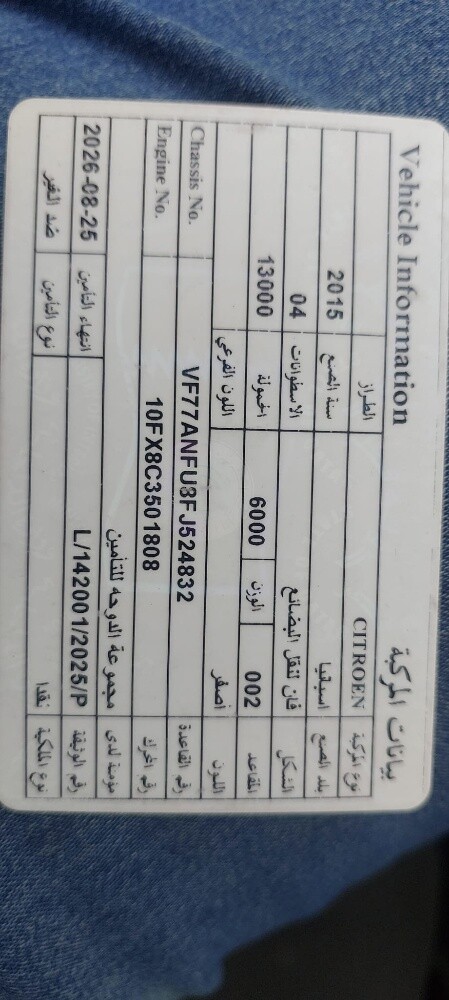 Vehicle Information بيانات المركبة
نوع المركبة CITROEN الطراز
بلد الصنع اسبانيا سنة الصنع 2015
الشكل فان لنقل البضائع الاسطوانات 04
المقاعد 002 الوزن 6000 الحمولة 13000
اللون أصفر اللون الفرعي
رقم القاعدة VF77ANFU8FJ524832 Chassis No.
رقم المحرك 10FX8C3501808 Engine No.
مؤمنة لدى مجموعة الدوحه للتأمين
رقم الوثيقة L/142001/2025/P انتهاء التأمين 2026-08-25
نوع الملكية نقدا نوع التأمين ضد الغير